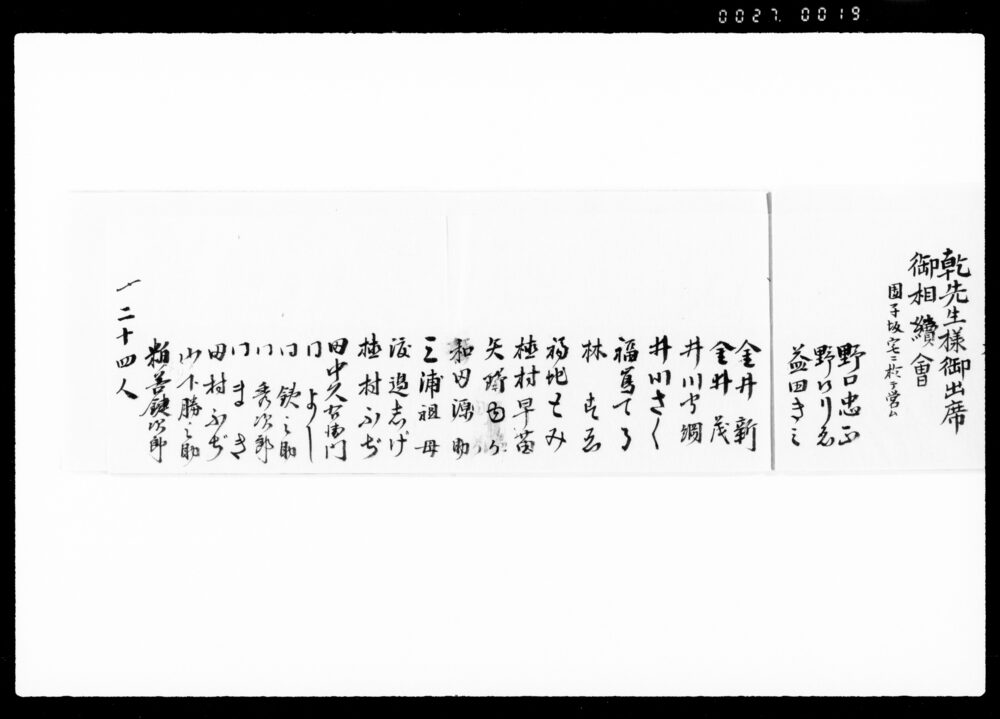 0027. 0019
乾先生様御出席
御相續會
團子坂宅ニ於テ営ム
野口忠正
野口りゑ
益田きミ
金井新
金井茂
井川守綱
井川さく
福寫てる
林すゑ
福地とみ
植村早苗
矢
和田源助
三浦祖母
渡辺志げ
植村ふぢ
田中久右衛門
〃よし
〃鉄之助
〃秀次郎
〃まき
田村ふぢ
山下勝之助
粕善鍵次郎
〆二十四人